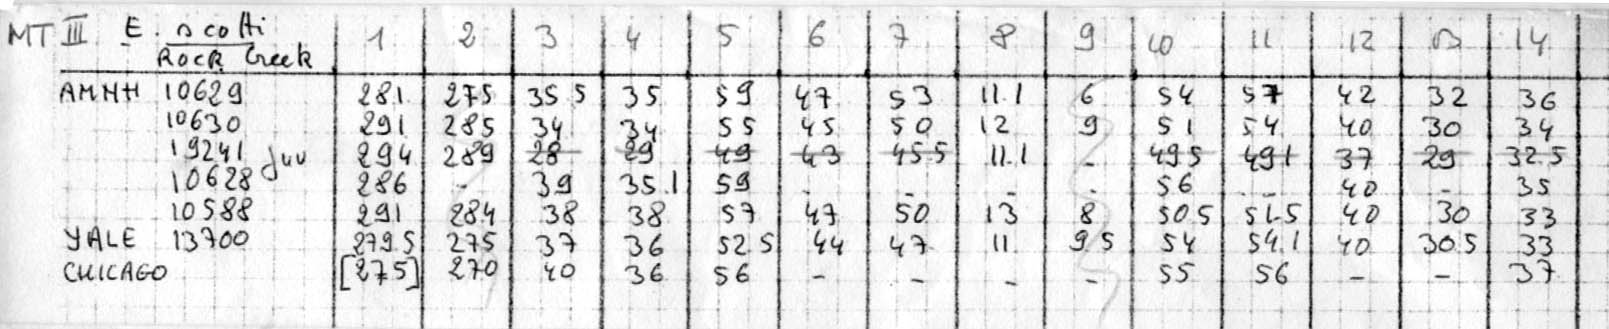 MT III E. scotti 1 2 3 4 5 6 7 8 9 10 11 12 13 14
Rock Creek
AMNH 10629 281 275 35 5 35 59 47 53 11.1 6 54 57 42 32 36
10630 291 285 34 34 55 45 50 12 9 51 54 40 30 34
19241 juv 294 289 28 29 49 43 45 5 11.1 - 49 5 49 1 37 29 32.5
10628 286 - 39 35.1 59 - - - - 56 - 40 - 35
10588 291 284 38 38 57 47 50 13 8 50 5 51.5 40 30 33
YALE 13700 279 5 275 37 36 52 5 44 47 11 9 5 54 54.1 40 30 5 33
CHICAGO [275] 270 40 36 56 - - - - 55 56 - - 37